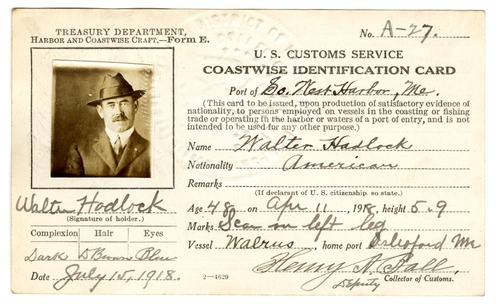 TREASURY DEPARTMENT,
HARBOR AND COASTWISE CRAFT.—FORM E.
No. A-27.
U. S. CUSTOMS SERVICE
COASTWISE IDENTIFICATION CARD
Port of So. West Harbor, Me.
(This card to be issued, upon production of satisfactory evidence
of nationality, to persons employed on vessels in the coasting or fishing
trade or operating in the harbor or waters of a port of entry, and is not
intended to be used for any other purpose.)
Name Walter Hadlock
Nationality American
Remarks
(If declarant of U. S. citizenship, so state.)
Age 48 on Apr 11, 1918, height 5.9
Marks Scar on left leg
Vessel Walrus, home port Islesford Me
Henry A. Ball,
Deputy Collector of Customs.
Walter Hadlock
(Signature of holder.)
Complexion Hair Eyes
Dark D Brown Blue
Date July 15, 1918.
2—4629